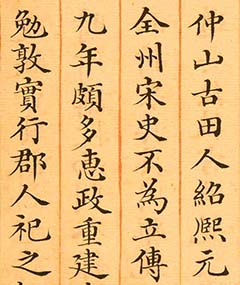 仲山古田人紹熙元
全州宋史不為立傳
九年頗多惠政重建
勉敦實行郡人祀之